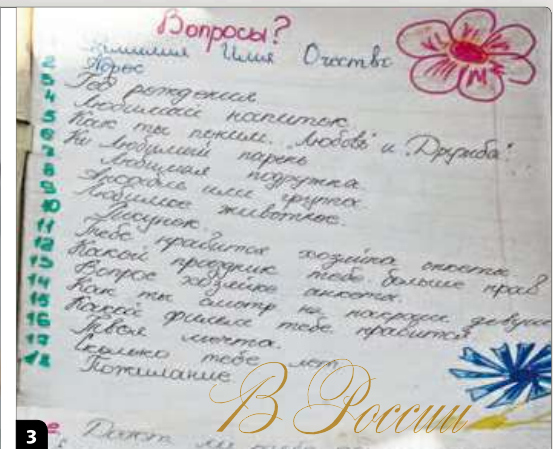 Вопросы?
Фамилия Имя Очества
2 Адрес
3 Год рождения
4 Любимый напиток
5 Как ты поним. "Любовь" и "Дружба".
6 Любимый парень
7 Любимая подружка.
8 Ансамбль или группа
9 Любимое животное.
10 Рисунок.
11 Тебе нравится хозяйка анкеты?
12 Какой праздник тебе больше нрав
13 Вопрос хозяйке анкеты.
14 Как ты смотр на накраш. девуш
15 Какой фильм тебе нравится
16 Твоя мечта.
17 Сколько тебе лет
18 Пожилание
В России
3